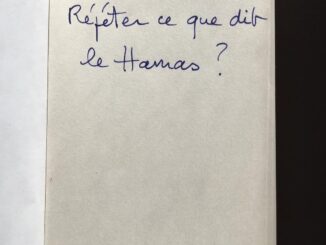 Répéter ce que dit
le Hamas ?